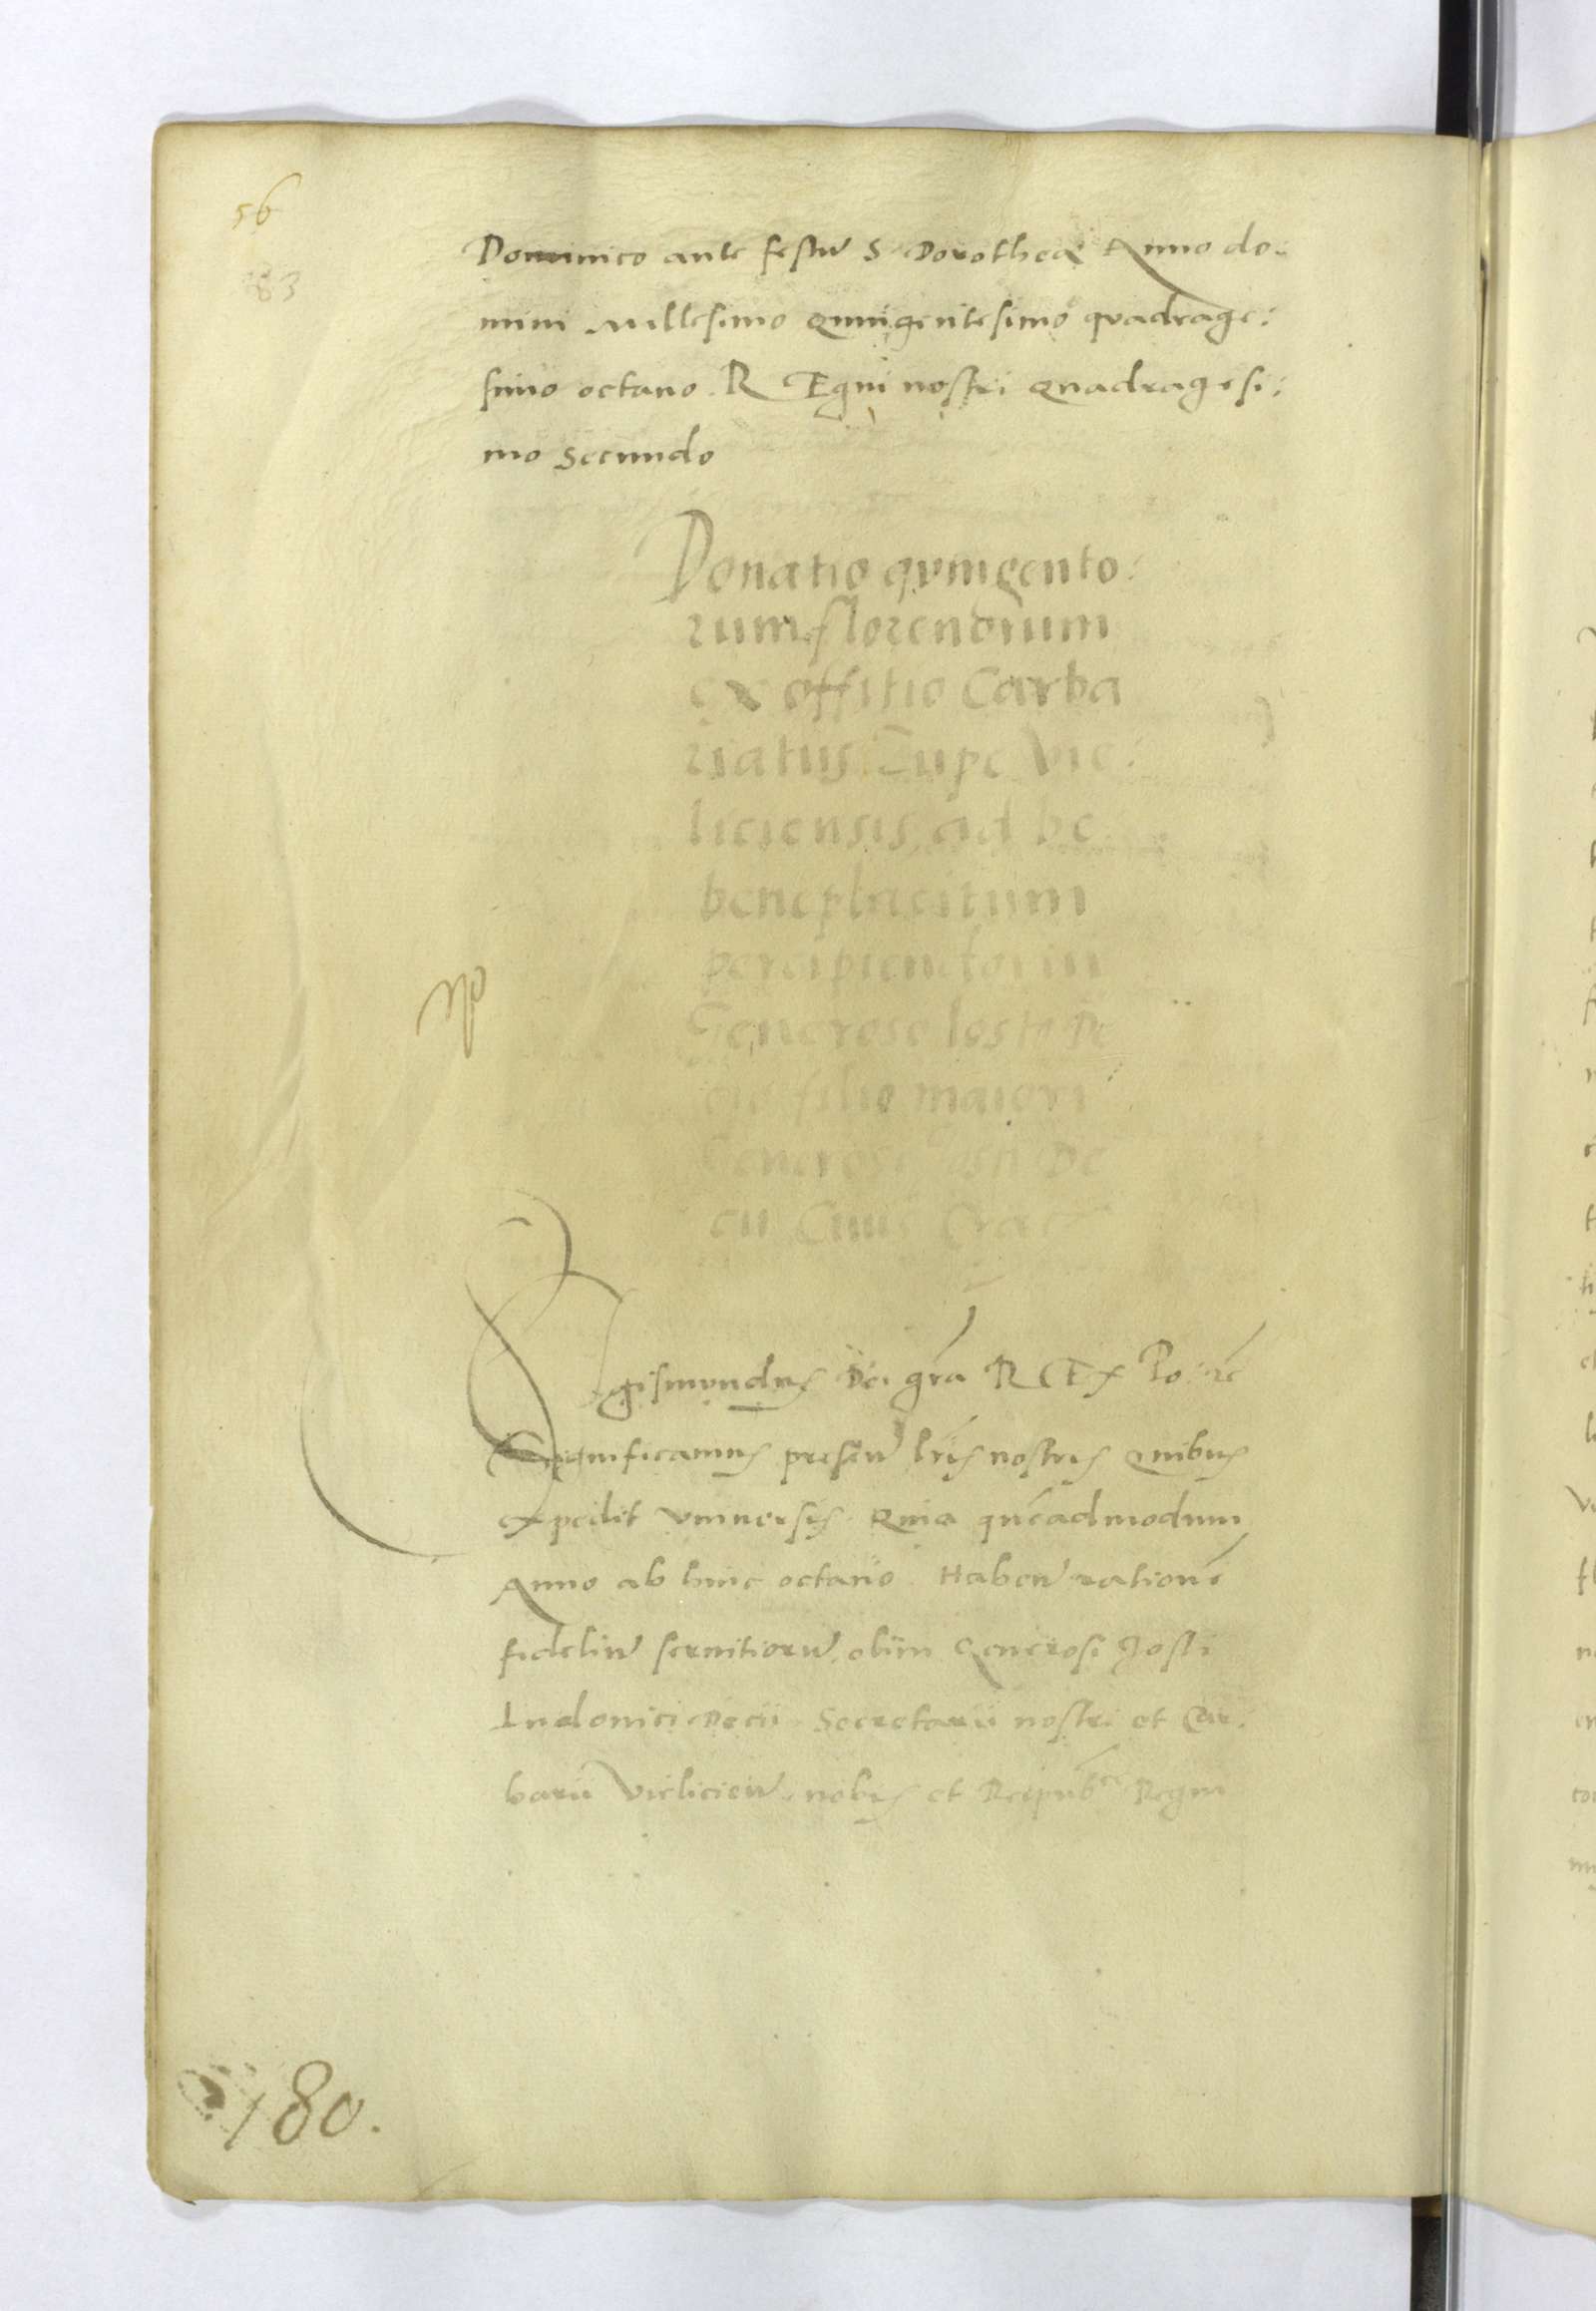 56
183
Dominico ante festũ S. Dorotheæ Anno do:
mini Millesimo Quingentesimo quadrage:
simo octauo. R Egni nostri Quadragesi:
mo Secundo
Donatio quingento:
rum florenorum
ex offitio Carba
riatus Zupe Vie:
liciensis, ad be
beneplacitum
percipiendorum
Generoso Iosto De
cio filio maiori
Generosi Iosti De
cii Ciuis Crac
Sigismundus Dei gra͂ R E X Po: ꝛc
Significamus presen͂ lr͂is nostris Quibus
expedit vniuersis. Quia que͂admodum
Anno ab hinc octauo. Haben͂ ratione͂
fideliũ seruitiorũ. olim Generosi Josti
Ludouici Decii. Secretarii nostri et Car:
barii Vielicien͂. nobis et Reipub^ce Regni
180.